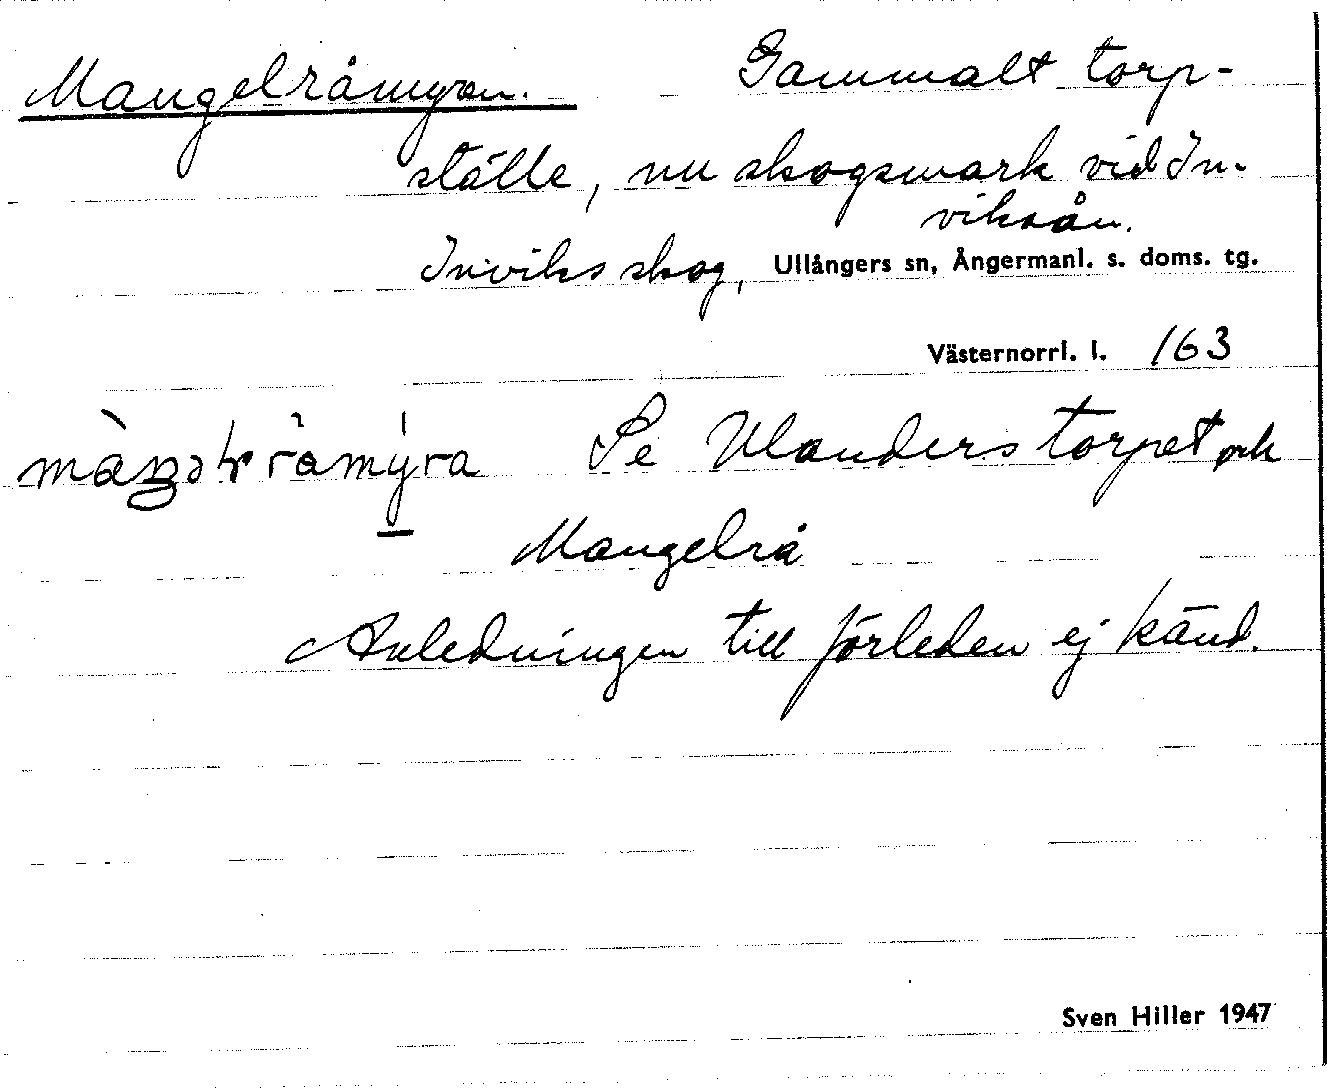 Mangelråmyran. Gammalt torp-
ställe, nu skogsmark vid In-
viksån.
Inviks skog, Ullångers sn, Ångermanl. s. doms. tg.
Västernorrl. l. 163
Se Ulanders torpet och
Mangelrå
Anledningen till förleden ej känd.
Sven Hiller 1947